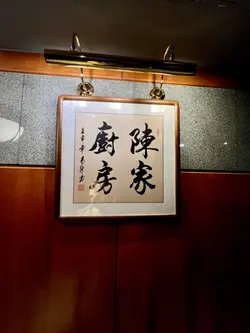 陳家
廚房